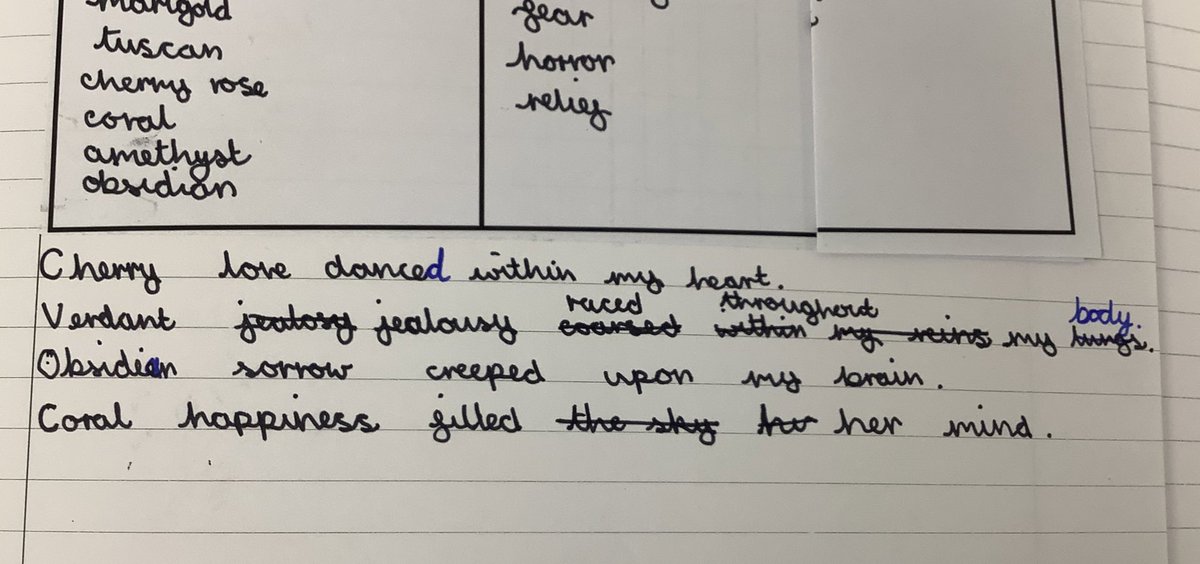 marigold
tuscan
cherry rose
coral
amethyst
obsidian
fear
horror
relief
Cherry love danced within my heart.
raced throughout body.
Verdant jealosy jealousy coarsed within my veins my lungs.
Obsidian sorrow creeped upon my brain.
Coral happiness filled the sky her mind.